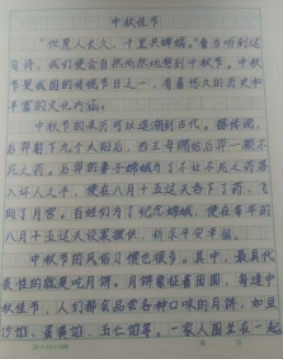 中秋佳节
“但愿人长久，千里共婵娟。”每当听到这
首诗，我们便会自然而然地想到中秋节。中秋
节是我国的传统节日之一，有着悠久的历史和
丰富的文化内涵。
中秋节的来历可以追溯到古代。据传说，
后羿射下九个太阳后，西王母赐给后羿一颗不
死之药。后羿的妻子嫦娥为了不让不死之药落
入坏人之手，便在八月十五这天吞下了药，飞
向了月宫。百姓们为了纪念嫦娥，便在每年的
八月十五这天设案摆供，祈求平安幸福。
中秋节的风俗习惯也很多。其中，最具代
表性的就是吃月饼。月饼象征着团圆，每逢中
秋佳节，人们都会品尝各种口味的月饼，如豆
沙馅、蛋黄馅、五仁馅等。一家人围坐在一起